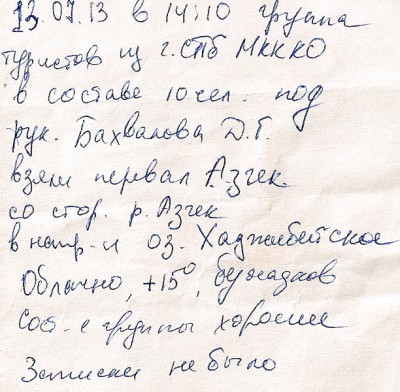 13.07.13 в 14:10 группа
туристов из г. СПб МКККО
в составе 10 чел. под
рук. Бахвалова Д.Г.
взяли перевал Азгек
со стор. р. Азгек
в напр-и оз. Хаджибейское
Облачно, +15°, без осадков
Сос-е группы хорошее
Записки не было